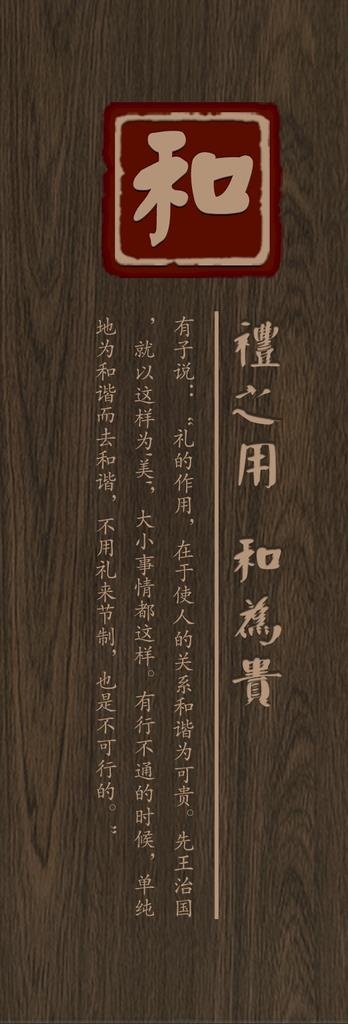 和
禮之用 和為貴
有子说：“礼的作用，在于使人的关系和谐为可贵。先王治国
，就以这样为‘美’，大小事情都这样。有行不通的时候，单纯
地为和谐而去和谐，不用礼来节制，也是不可行的。”